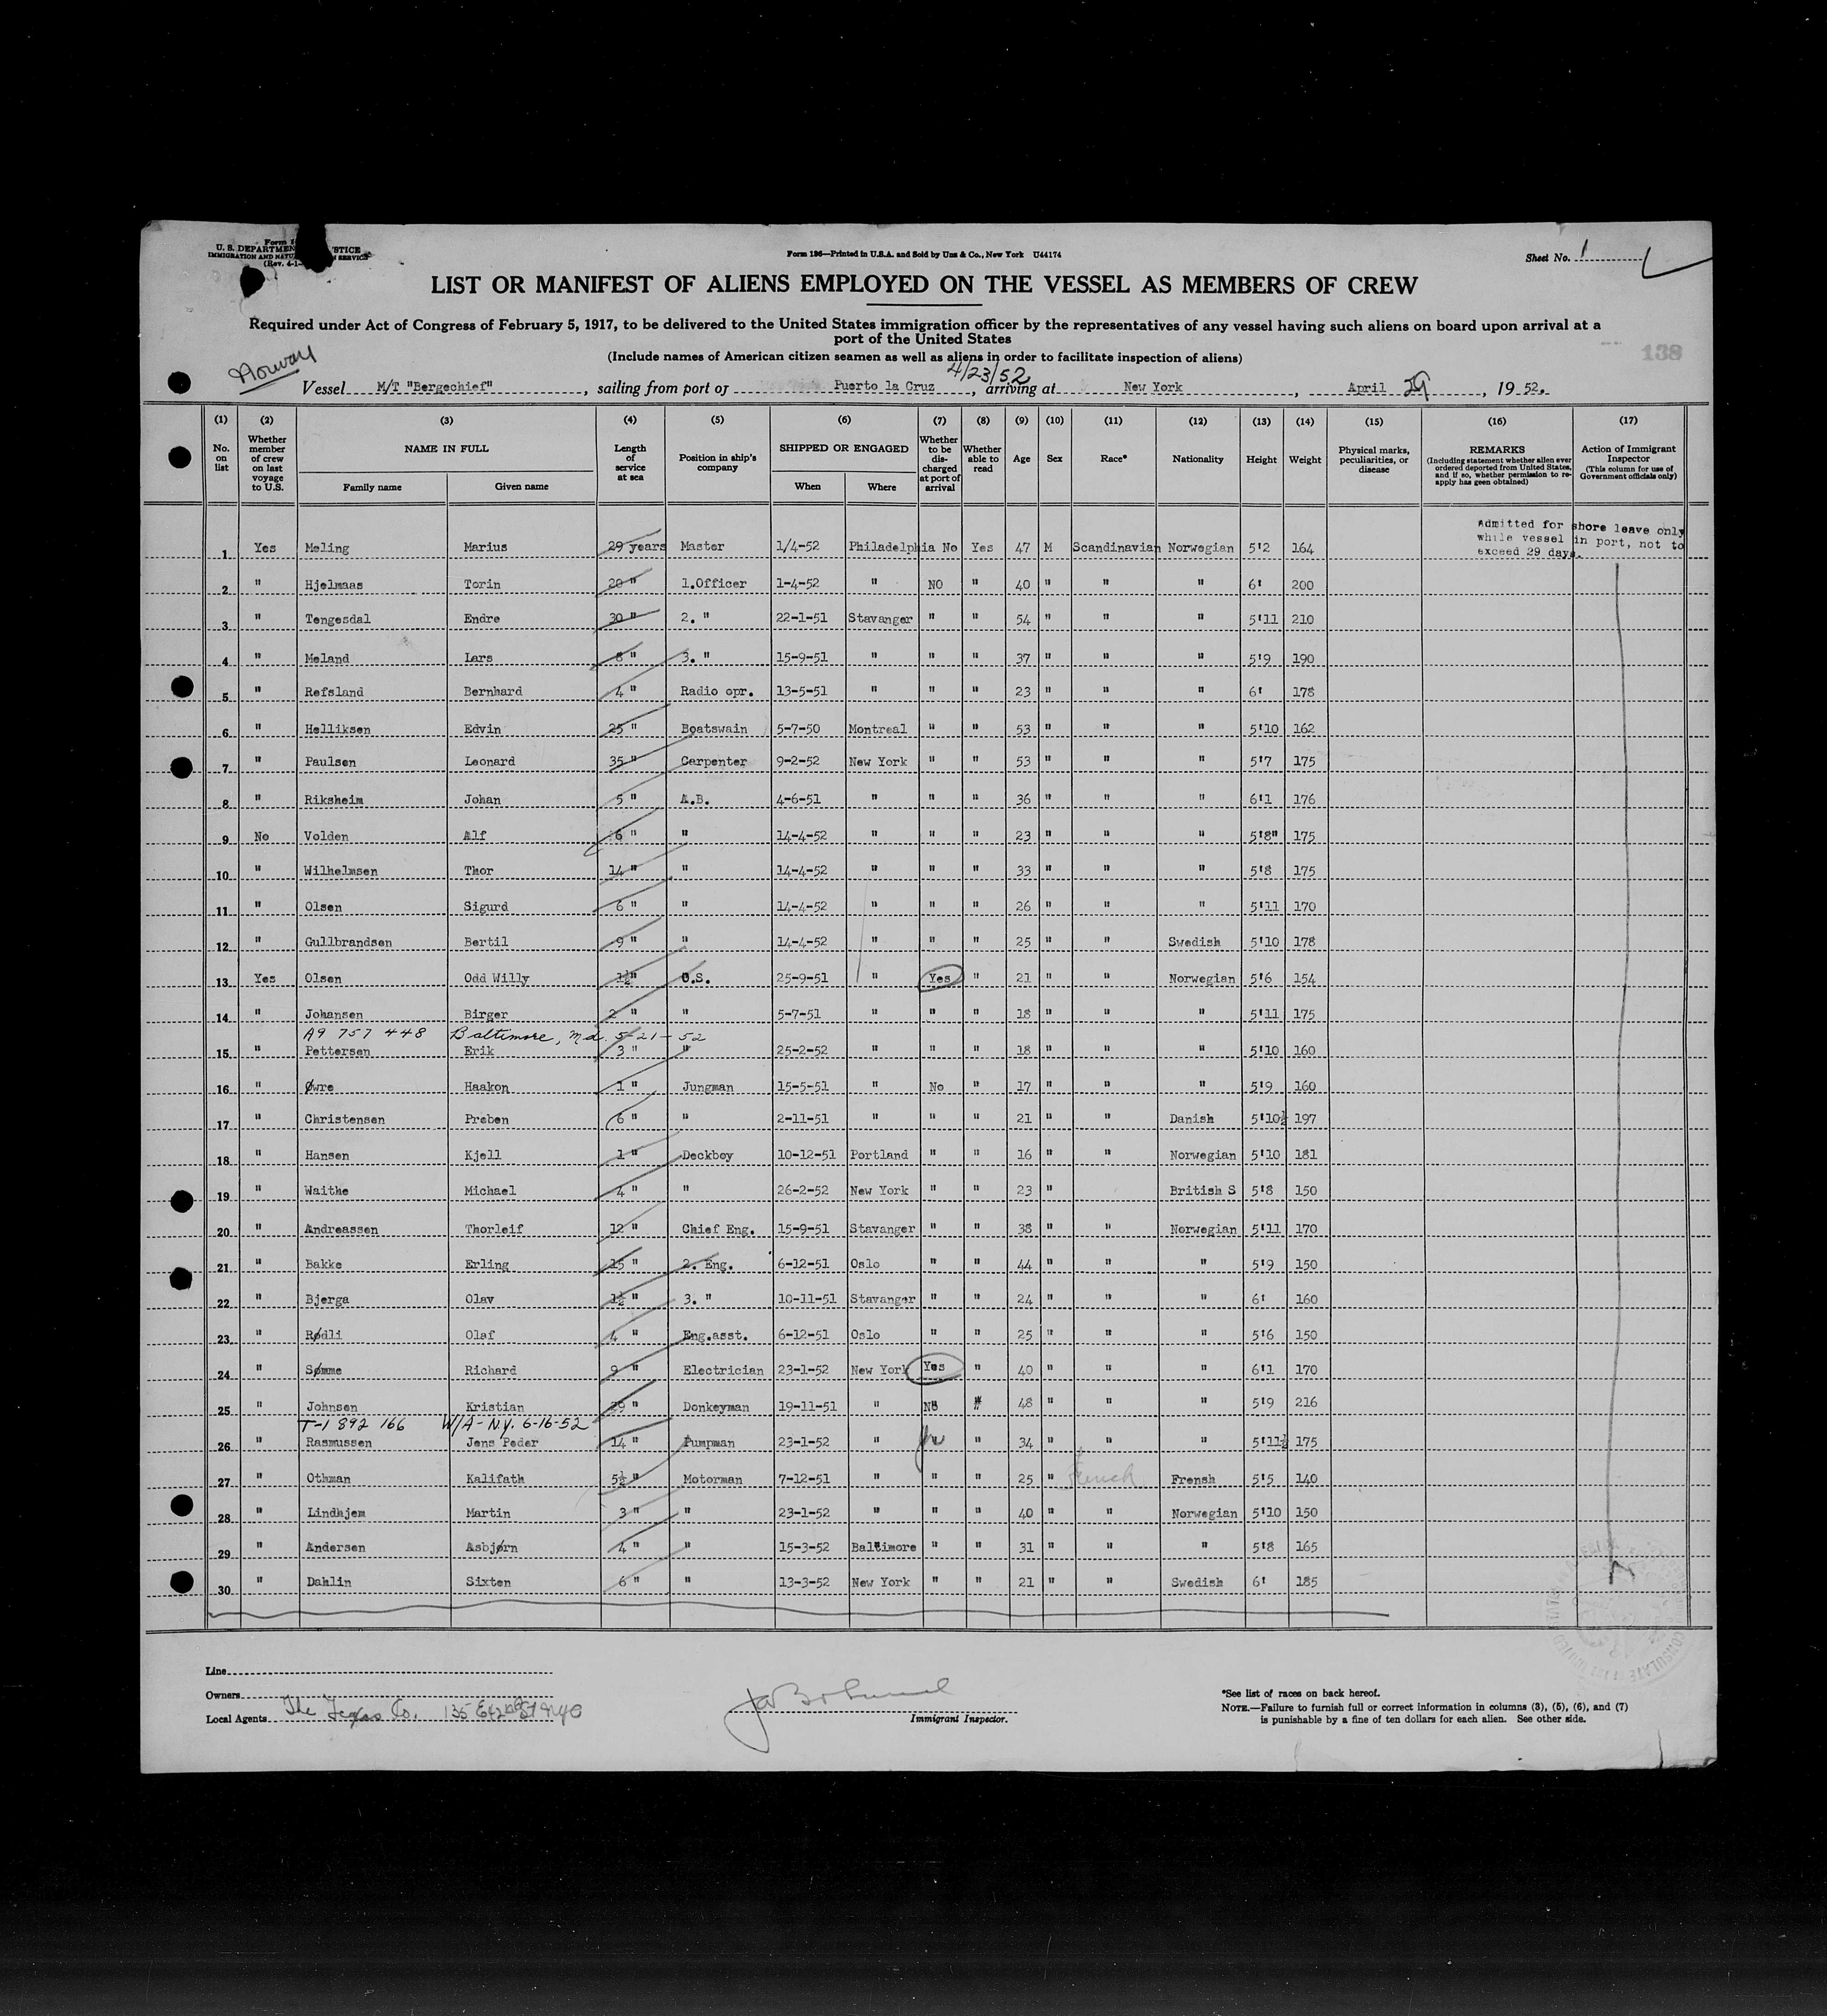 Form 1
U. S. DEPARTMEN STICE
IMMIGRATION AND NATU N SERVICE
(Rev. 4-1-
Form 136—Printed in U.S.A. and Sold by Unz & Co., New York U44174
Sheet No. 1
LIST OR MANIFEST OF ALIENS EMPLOYED ON THE VESSEL AS MEMBERS OF CREW
Required under Act of Congress of February 5, 1917, to be delivered to the United States immigration officer by the representatives of any vessel having such aliens on board upon arrival at a
port of the United States
(Include names of American citizen seamen as well as aliens in order to facilitate inspection of aliens)
138
Norway
4/23/52
Vessel M/T "Bergechief", sailing from port of Puerto la Cruz, arriving at New York, April 29, 19 52.
(1) (2) (3) (4) (5) (6) (7) (8) (9) (10) (11) (12) (13) (14) (15) (16) (17)
No. on list Whether member of crew on last voyage to U.S. NAME IN FULL Length of service at sea Position in ship's company SHIPPED OR ENGAGED Whether to be discharged at port of arrival Whether able to read Age Sex Race* Nationality Height Weight Physical marks, peculiarities, or disease REMARKS (Including statement whether alien ever ordered deported from United States, and if so, whether permission to re-apply has geen obtained) Action of Immigrant Inspector (This column for use of Government officials only)
Family name Given name When Where
Admitted for shore leave only
while vessel in port, not to
exceed 29 days.
1 Yes Meling Marius 29 years Master 1/4-52 Philadelphia No Yes 47 M Scandinavian Norwegian 5'2 164
2 " Hjelmaas Torin 20 " 1.Officer 1-4-52 " NO " 40 " " " 6' 200
3 " Tengesdal Endre 30 " 2. " 22-1-51 Stavanger " " 54 " " " 5'11 210
4 " Meland Lars 8 " 3. " 15-9-51 " " " 37 " " " 5'9 190
5 " Refsland Bernhard 4 " Radio opr. 13-5-51 " " " 23 " " " 6' 178
6 " Helliksen Edvin 25 " Boatswain 5-7-50 Montreal " " 53 " " " 5'10 162
7 " Paulsen Leonard 35 " Carpenter 9-2-52 New York " " 53 " " " 5'7 175
8 " Riksheim Johan 5 " A.B. 4-6-51 " " " 36 " " " 6'1 176
9 No Volden Alf 6 " " 14-4-52 " " " 23 " " " 5'8" 175
10 " Wilhelmsen Thor 14 " " 14-4-52 " " " 33 " " " 5'8 175
11 " Olsen Sigurd 6 " " 14-4-52 " " " 26 " " " 5'11 170
12 " Gullbrandsen Bertil 9 " " 14-4-52 " " " 25 " " Swedish 5'10 178
13 Yes Olsen Odd Willy 1½" O.S. 25-9-51 " Yes " 21 " " Norwegian 5'6 154
14 " Johansen Birger 2 " " 5-7-51 " " " 18 " " " 5'11 175
A9 757 448 Baltimore, Md. 5-21-52
15 " Pettersen Erik 3 " " 25-2-52 " " " 18 " " " 5'10 160
16 " Øwre Haakon 1 " Jungman 15-5-51 " No " 17 " " " 5'9 160
17 " Christensen Preben 6 " " 2-11-51 " " " 21 " " Danish 5'10½ 197
18 " Hansen Kjell 1 " Deckboy 10-12-51 Portland " " 16 " " Norwegian 5'10 181
19 " Waithe Michael 4 " " 26-2-52 New York " " 23 " British S 5'8 150
20 " Andreassen Thorleif 12 " Chief Eng. 15-9-51 Stavanger " " 38 " " Norwegian 5'11 170
21 " Bakke Erling 15 " 2. Eng. 6-12-51 Oslo " " 44 " " " 5'9 150
22 " Bjerga Olav 1½ " 3. " 10-11-51 Stavanger " " 24 " " " 6' 160
23 " Rødli Olaf 4 " Eng.asst. 6-12-51 Oslo " " 25 " " " 5'6 150
24 " Sømme Richard 9 " Electrician 23-1-52 New York Yes " 40 " " " 6'1 170
25 " Johnsen Kristian 29 " Donkeyman 19-11-51 " No " 48 " " " 5'9 216
T-1 892 166 W/A-N.Y. 6-16-52
26 " Rasmussen Jens Peder 14 " Pumpman 23-1-52 " " 34 " " " 5'11½ 175
27 " Othman Kalifath 5½ " Motorman 7-12-51 " " " 25 " French Frensh 5'5 140
28 " Lindhjem Martin 3 " " 23-1-52 " " " 40 " " Norwegian 5'10 150
29 " Andersen Asbjørn 4 " " 15-3-52 Baltimore " " 31 " " " 5'8 165
30 " Dahlin Sixten 6 " " 13-3-52 New York " " 21 " " Swedish 6' 185
Line
Owners
Local Agents The Texas Co. 135 E42nd St NYC
Immigrant Inspector.
*See list of races on back hereof.
NOTE.—Failure to furnish full or correct information in columns (3), (5), (6), and (7)
is punishable by a fine of ten dollars for each alien. See other side.